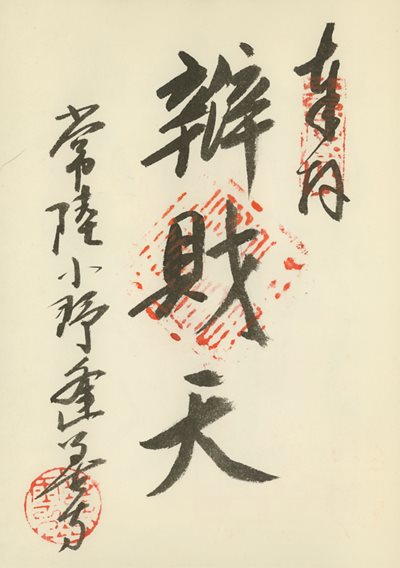 奉拝
辨財天
常陸小野逢善寺